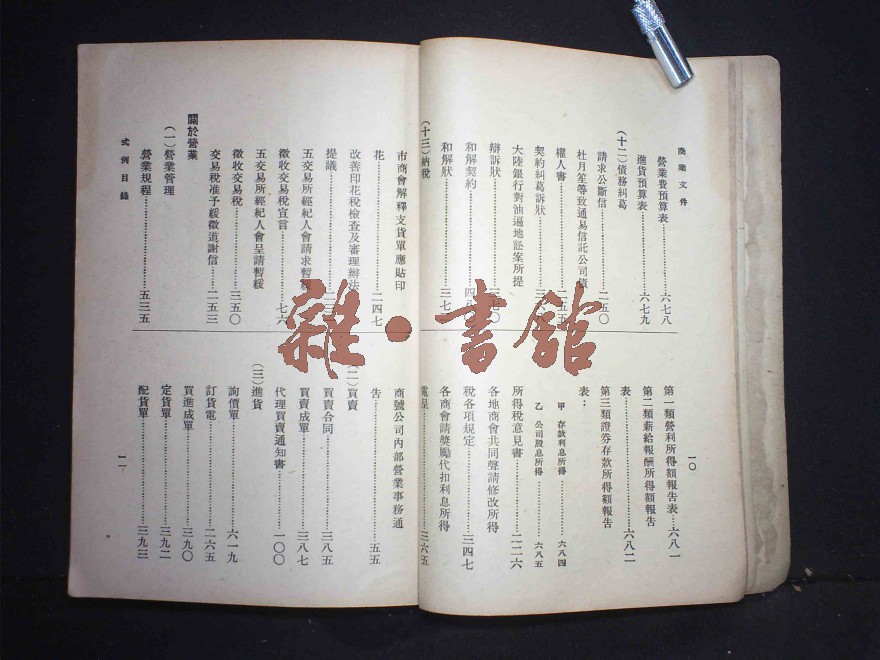 商業文件
一〇
營業費預算表……六七八
進貨預算表……六七九
(十二)債務糾葛
請求公斷信……二五〇
杜月笙等致通易信託公司債
權人書……二五五
契約糾葛訴狀
大陸銀行對油遍地訟案所提
辯訴狀
和解契約
和解狀……三七
(十三)納稅
第一類營利所得額報告表……六八一
第二類薪給報酬所得額報告
表……六八二
第三類證券存款所得額報告
表:
甲 存款利息所得……六八四
乙 公司股息所得……六八五
所得稅意見書……二二六
各地商會共同聲請修改所得
稅各項規定……三四七
各商會請獎勵代扣利息所得
電呈……三六五
市商會解釋支貨單應貼印
花……二四七
改善印花稅檢查及審理辦法
提議
五交易所經紀人會請求暫緩
徵收交易稅宣言……七六
五交易所經紀人會呈請暫緩
徵收交易稅……三五〇
交易稅准予緩徵道謝信……二五三
關於營業
(一)營業管理
營業規程……五三五
商號公司內部營業事務通
告……五五
(二)買賣
買賣合同……三八五
買賣成單……三八七
代理買賣通知書……一〇〇
(三)進貨
詢價單……六一九
訂貨電……二六五
買進成單……三九〇
定貨單……三九二
配貨單……三九三
式例目錄
一一
雜·書館